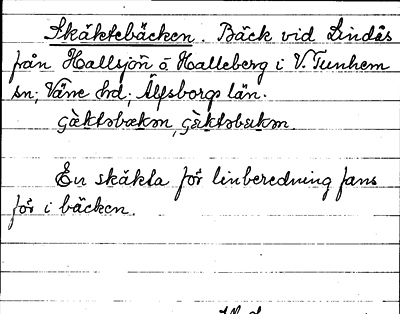 Skäktebäcken. Bäck vid Lindås
från Hallsjön å Halleberg i V. Tunhem
sn; Väne hd; Älfsborgs län.
En skäkta för linberedning fans
för i bäcken.